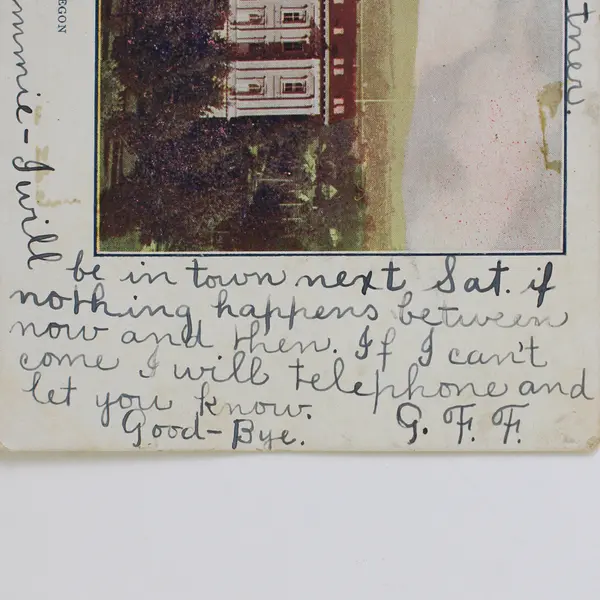 EGON
mmie - I will
be in town next Sat. if
nothing happens between
now and then. If I can't
come I will telephone and
let you know.
Good-Bye. G. F. F.
tner.